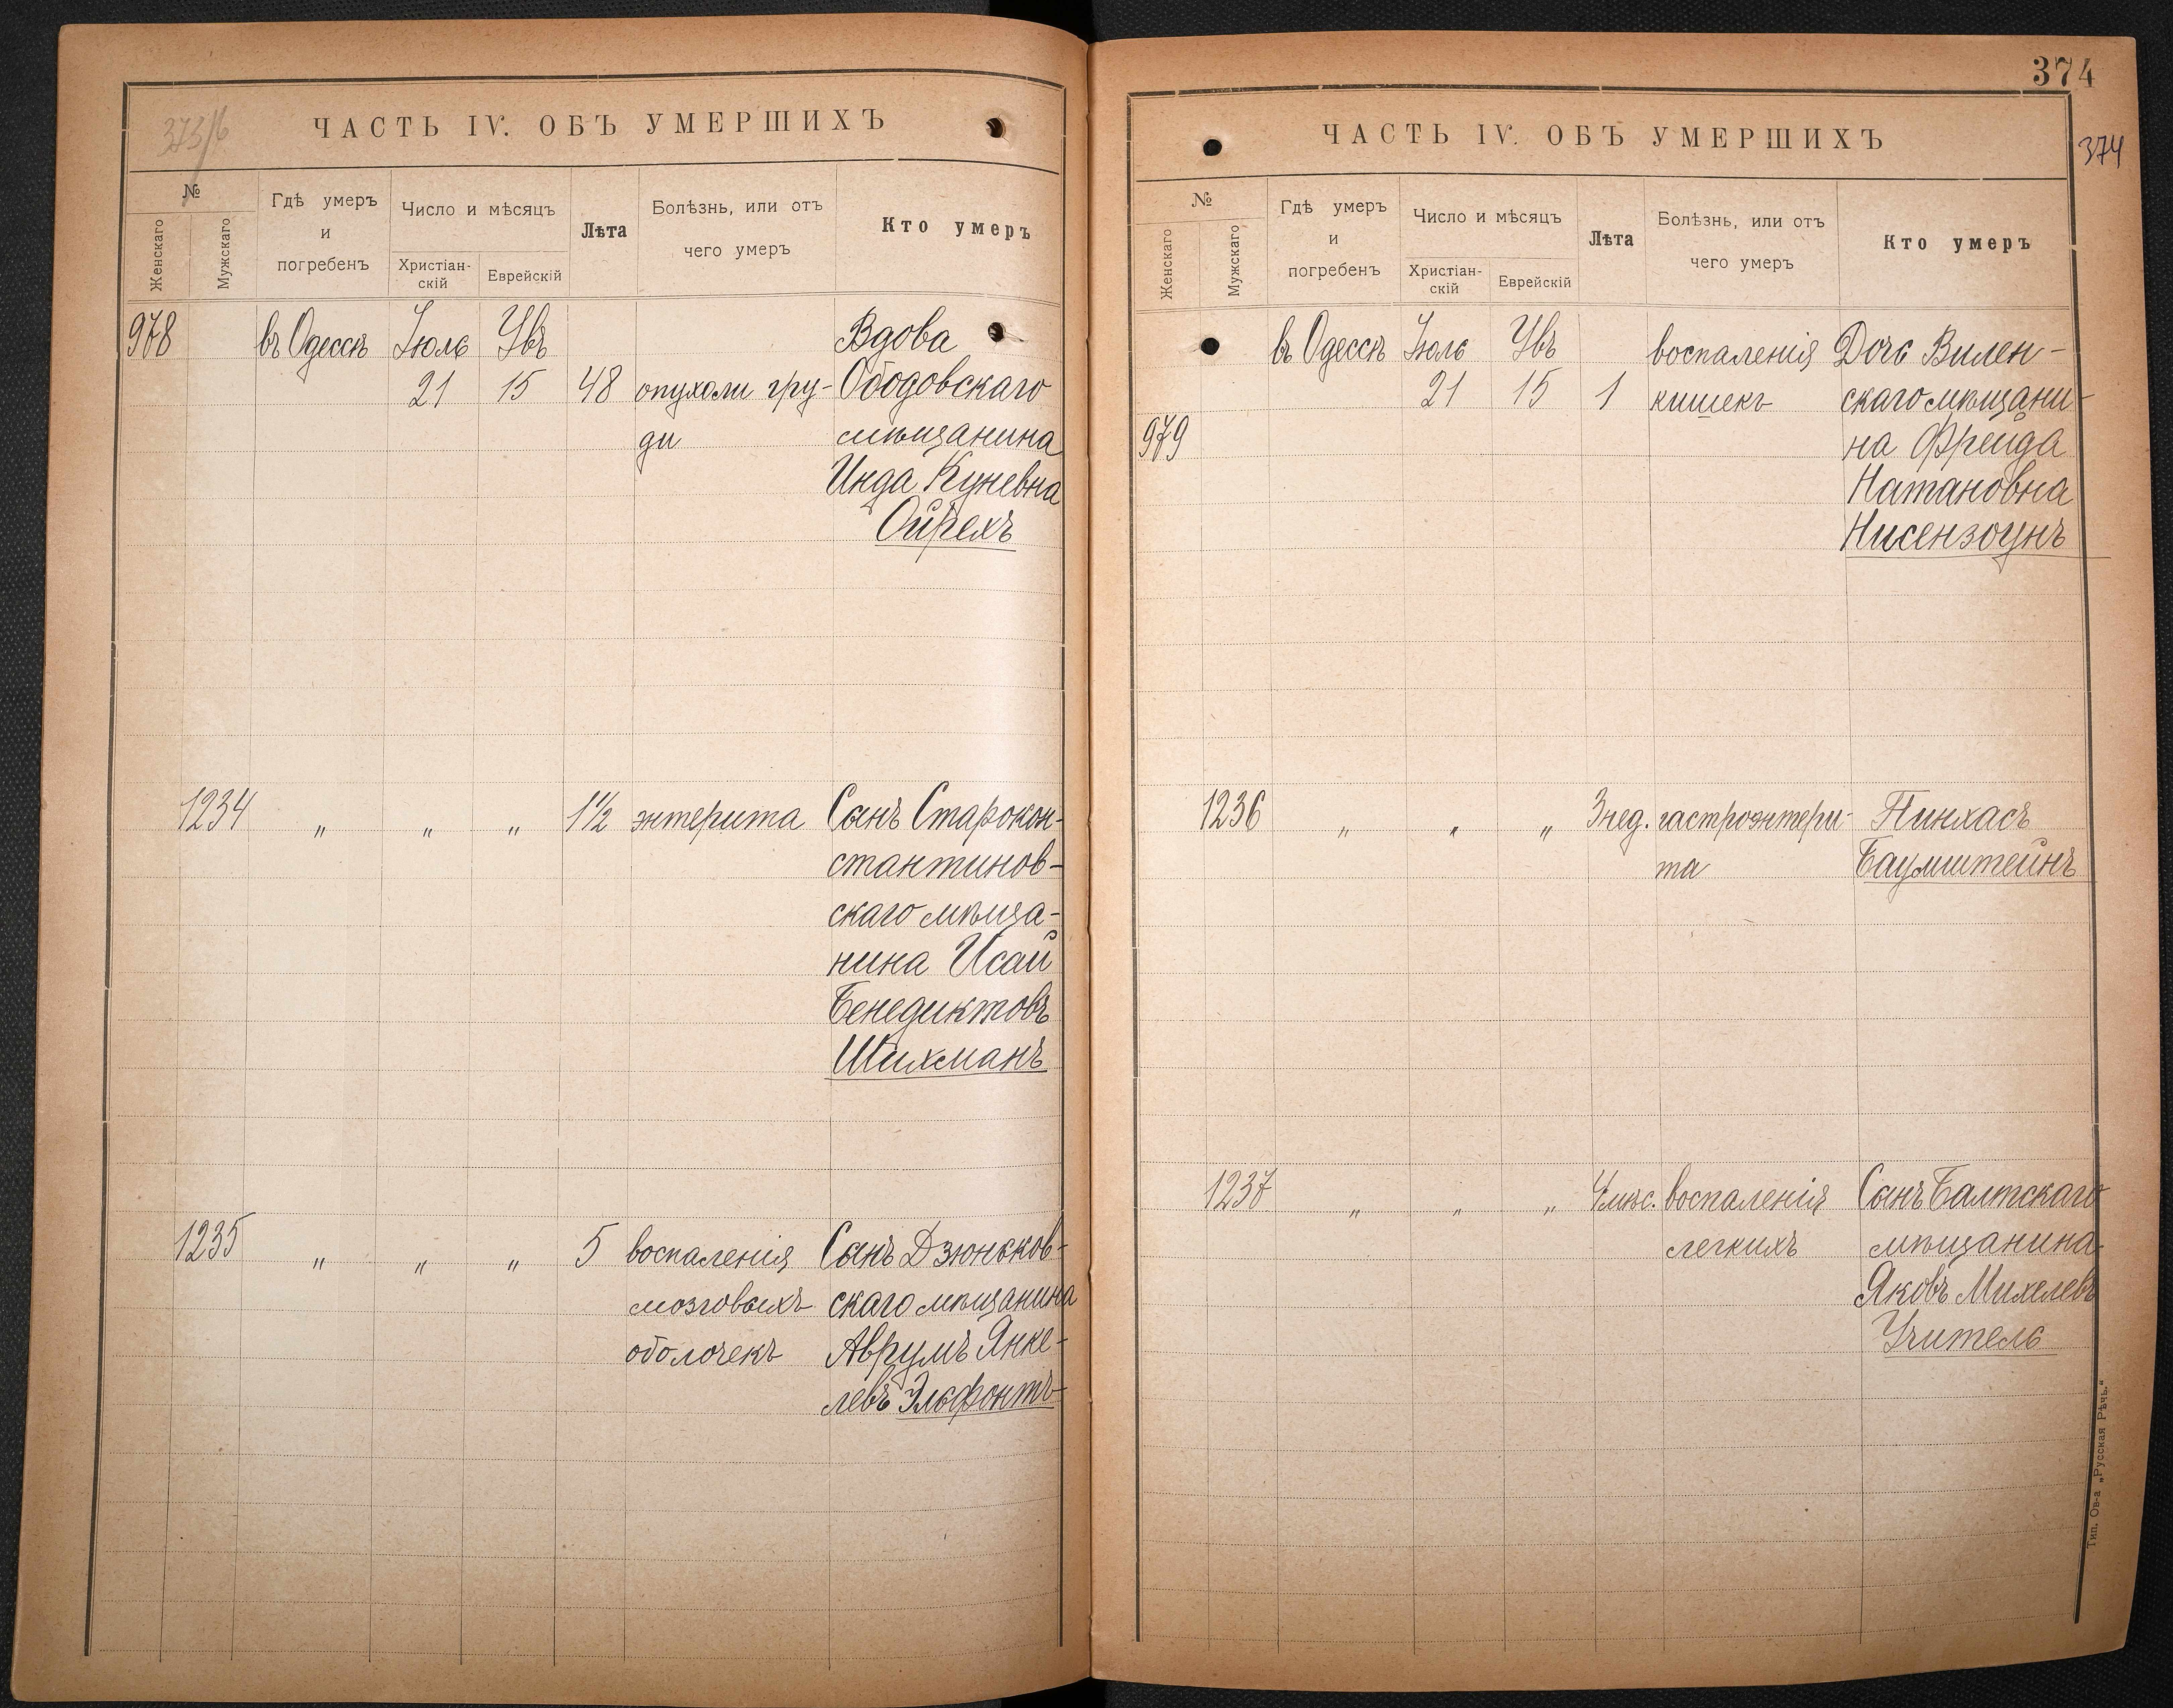 373/6
ЧАСТЬ IV. ОБЪ УМЕРШИХЪ
№
Женскаго
Мужскаго
Гдѣ умеръ
и
погребенъ
Число и мѣсяцъ
Христіан-
скій
Еврейскій
Лѣта
Болѣзнь, или отъ
чего умеръ
Кто умеръ
978 въ Одессѣ Іюль Увъ Вдова
21 15 48 опухоли гру- Ободовскаго
ди мѣщанина
Инда Куневна
Ойрехъ
1234 „ „ „ 1½ энтерита Сынъ Старокон-
стантинов-
скаго мѣща-
нина Исай
Бенедиктовъ
Шихманъ
1235 „ „ „ 5 воспаленія Сынъ Дзюньков-
мозговыхъ скаго мѣщанина
оболочекъ Аврумъ Янке-
левъ Эльфонтъ
374
ЧАСТЬ IV. ОБЪ УМЕРШИХЪ
374
№
Женскаго
Мужскаго
Гдѣ умеръ
и
погребенъ
Число и мѣсяцъ
Христіан-
скій
Еврейскій
Лѣта
Болѣзнь, или отъ
чего умеръ
Кто умеръ
въ Одессѣ Іюль Увъ воспаленія Дочь Вилен-
21 15 1 кишекъ скаго мѣщани-
979 на Фрейда
Натановна
Нисензоунъ
1236 „ „ „ 3 нед. гастроэнтери- Пинхасъ
та Баумштейнъ
1237 „ „ „ 4 мѣс. воспаленія Сынъ Балтскаго
легкихъ мѣщанина
Яковъ Михелевъ
Учитель
Тип. Ов-а „Русская Рѣчь.“